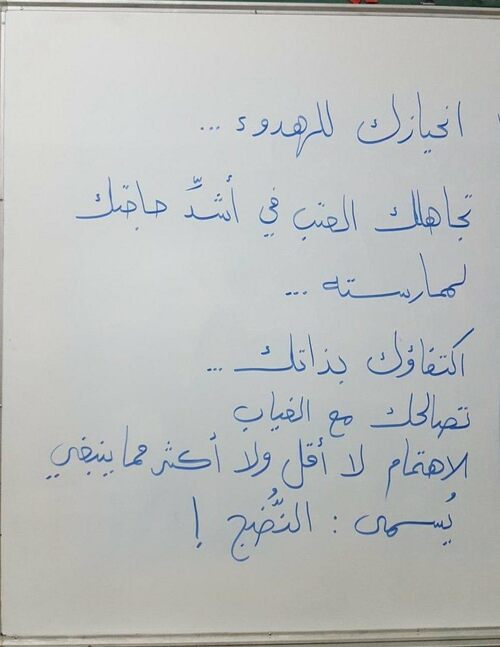 انحيازك للهدوء ...
تجاهلك العتب في أشدِّ حاجتك
لممارسته ...
اكتفاؤك بذاتك ...
تصالحك مع الغياب
الاهتمام لا أقل ولا أكثر مما ينبغي
يُسمى : النُّضج !